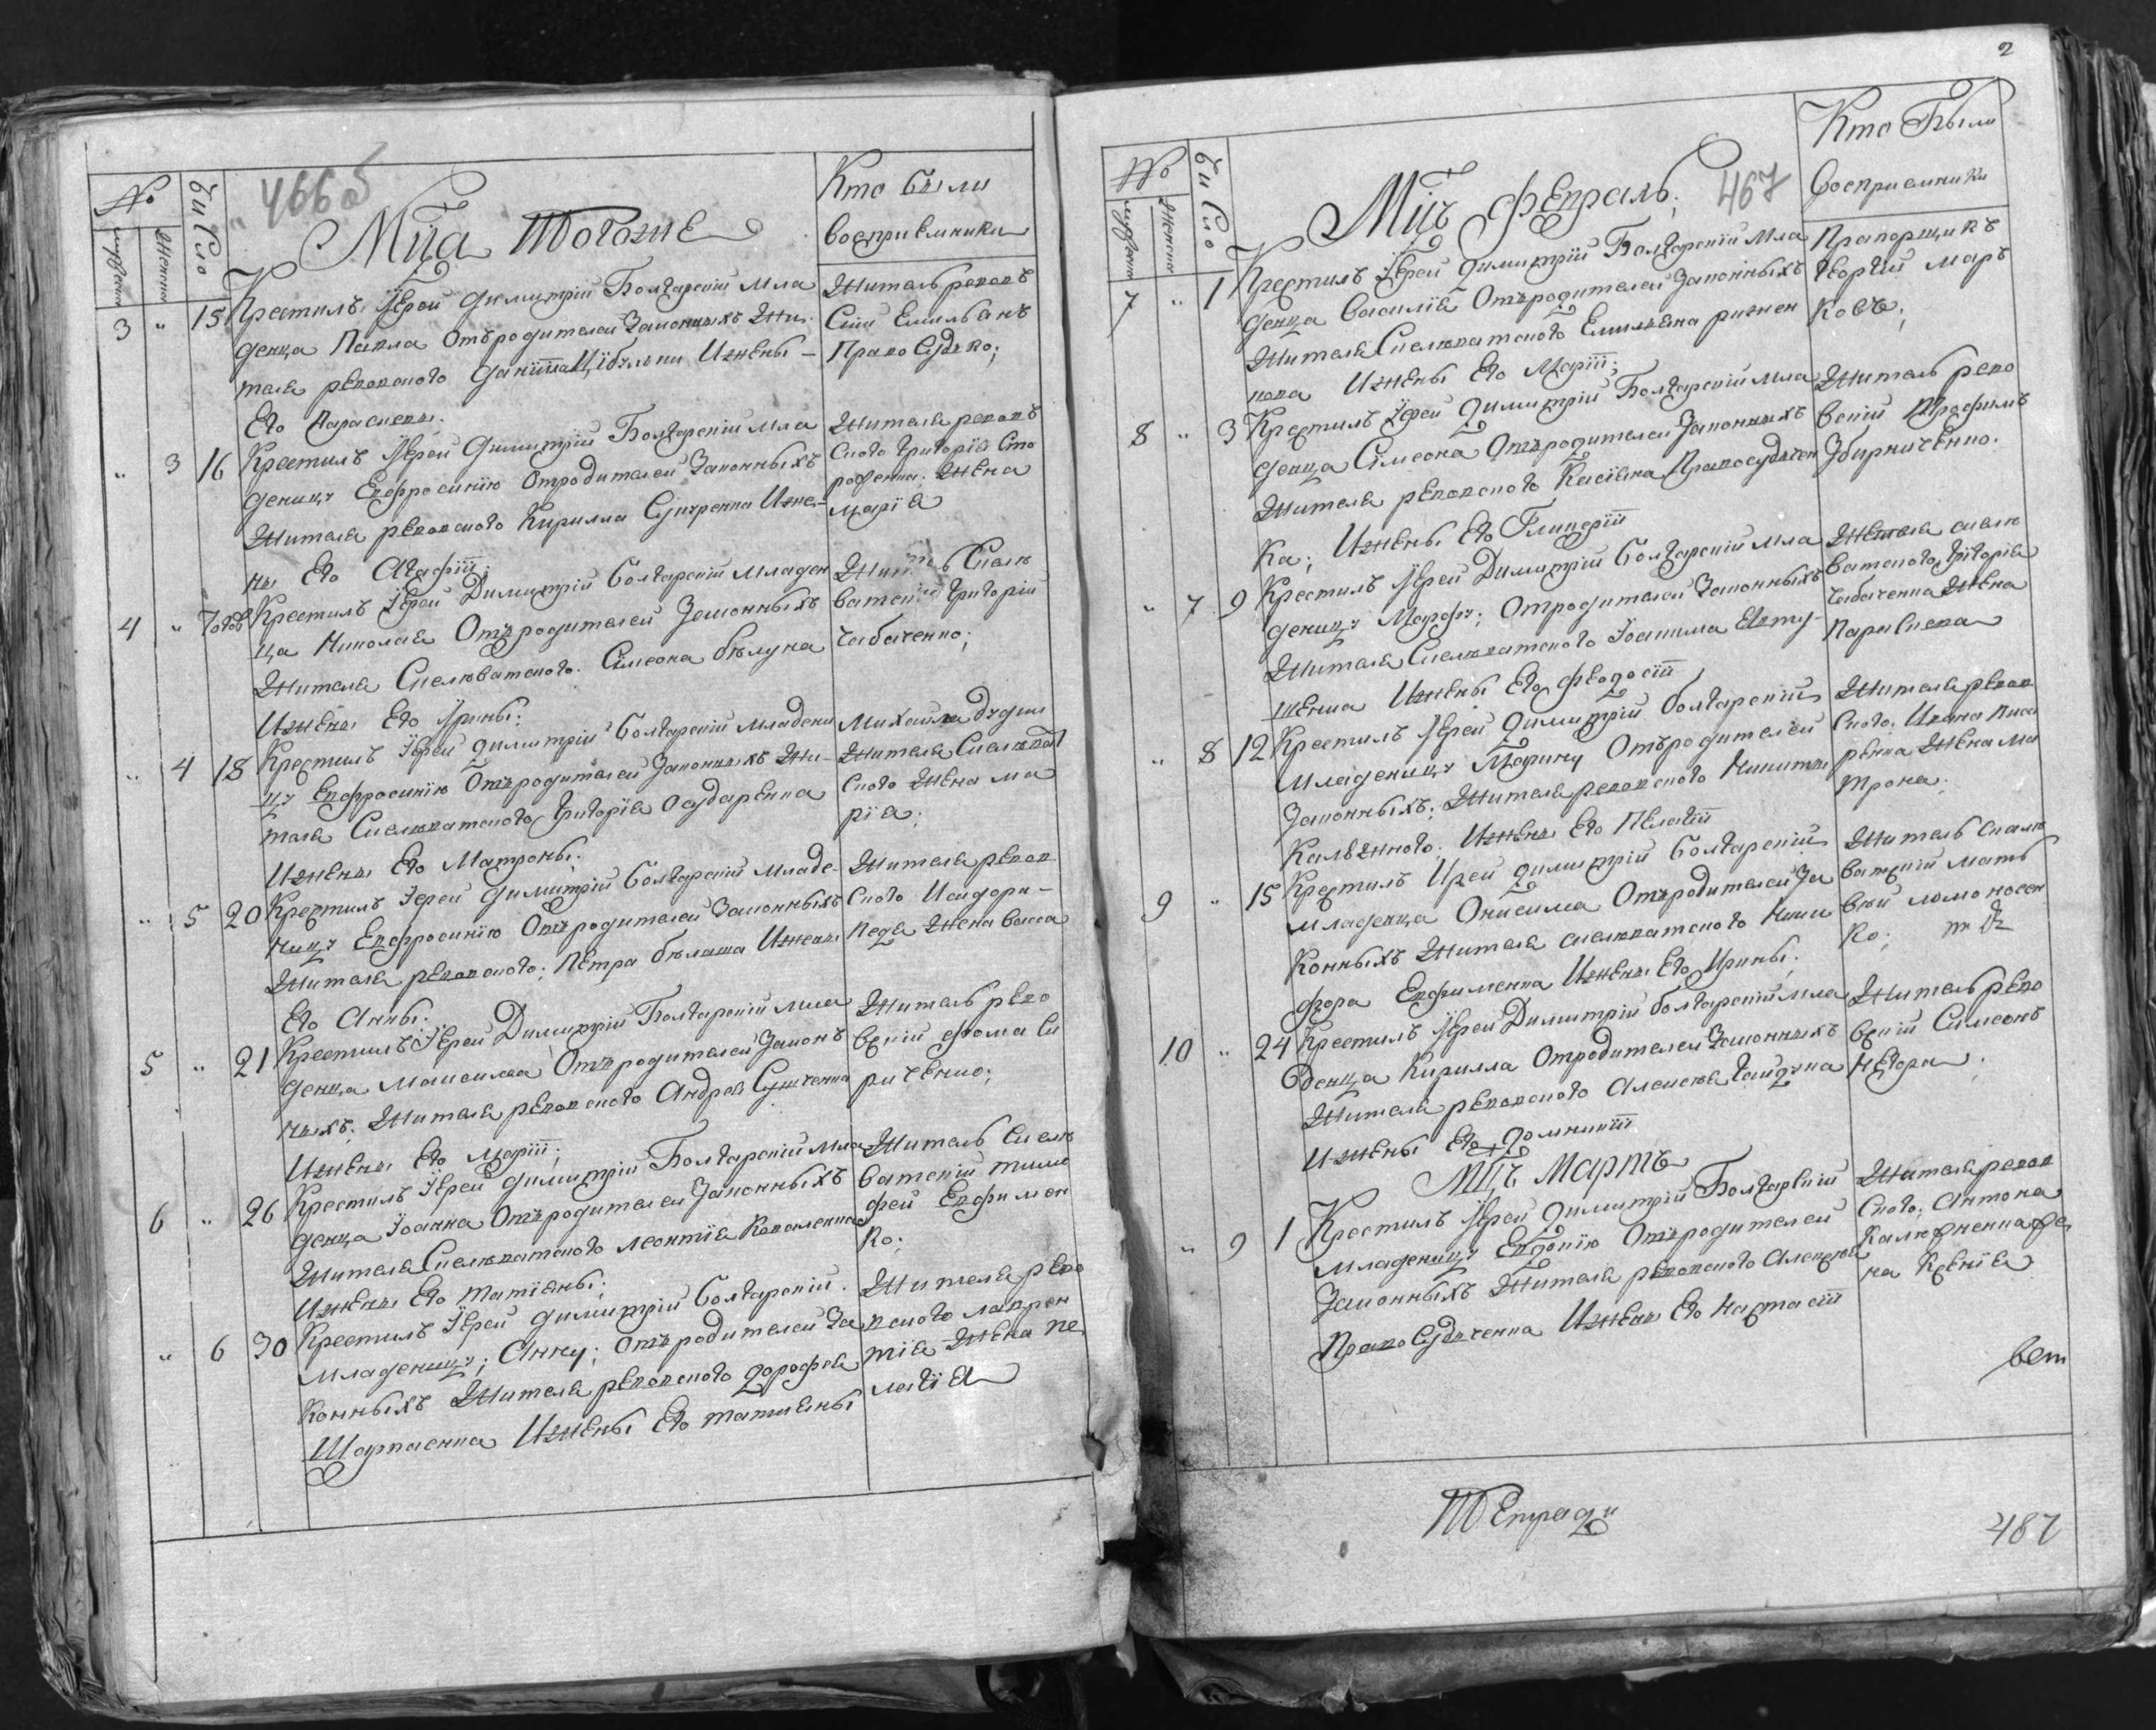 466 об
№ Число
мужеска женска
Мца Тогоже
Кто были
восприемники
3 " 15 Крестилъ Іерей Димитрій Болгарскій мла
денца Павла Отъродителей Законныхъ Жи
теля ревовского Даніила Цѣбулки Ижены –
Его Параскевы.
Житель ревовъ
Скій Емильянъ
Правосудько;
" 3 16 Крестилъ Іерей Димитрій Болгарскій мла
деницу Евфросинію Отродителей Законныхъ
Жителя ревовского Кирилла Ижены
Его Агафіи;
Жителя ревовъ
Ского Григорія Сто
рожен Жена
Марія
4 " Тогож Крестилъ Іерей Димитрій Болгарскій Младен
ца Николая Отъродителей Законныхъ
Жителя Сиелюватского Сімеона бѣлука
Ижены Его Ирины;
Житель Сиелю
ватскій Григорій
Чабаченко;
" 4 18 Крестилъ Іерей Димитрій Болгарскій младени
цу Евфросинію Отъродителей Законныхъ Жи–
теля Сиелюватского Григорія Осударенка
Ижены Его Матроны;
Михайла Дудни
Жителя Сиелюват
Ского Жена ма
рія;
" 5 20 Крестилъ Іерей Димитрій Болгарскій младе–
ницу Евфросинію Отъродителей Законныхъ
Жителя ревовского; Петра бѣлаша Ижены
Его Анны;
Жителя ревов
Ского Исидора –
Жена васса
5 " 21 Крестилъ Іерей Димитрій Болгарскій мла
денца Отъродителей Законъ
ныхъ; Жителя ревовского Андрея Сушченка
Ижены Его Маріи;
Житель рево
вскій Фома Си
риченко;
6 " 26 Крестилъ Іерей Димитрій Болгарскій мла
денца Іоанна Отъродителей Законныхъ
Жителя Сиелюватского Леонтія Коваленка
Ижены Его Татіяны;
Житель Сиелю
ватскій тимо
фей Ефимен
ко;
" 6 30 Крестилъ Іерей Димитрій Болгарскій
младеницу; Анну; отъродителей За
конныхъ Жителя ревовского Дорофея
Шарпаенка Ижены Его татияны
Жителя рево
вского лаврен
тія Жена пе
лагія
2
467
№ Число
мужеска Женска
Мцъ Февраль;
Кто были
восприемники
7 " 1 Крестилъ Іерей Димитрій Болгарскій мла
денца Василія Отъродителей Законныхъ
Жителя Сиелюватского Емильяна рижен
кова Ижены Его Маріи;
Прапорщикъ
Георгій Мар
ковъ;
8 " 3 Крестилъ Іерей Димитрій Болгарскій мла
денца Сімеона Отъродителей Законныхъ
Жителя ревовского Касіяна Правосудчен
ка; Ижены Его Гликеріи
Житель рево
вскій Трофимъ
Збирниченко.
" 7 9 Крестилъ Іерей Димитрій Болгарскій мла
деницу Марфу; Отродителей Законныхъ
Жителя Сиелюватского Іоакима Евту–
шенка Ижены Его феодосіи
Жителя сиелю
ватского Григорія
Чабаченка Жена
Парискева
" 8 12 Крестилъ Іерей Димитрій болгарскій
младеницу Марину Отъродителей
Законныхъ; Жителя ревовского Никиты
Ижены Его Пелагіи
Жителя ревов
Ского; Ивана Писа
ренка Жена Ма
трона;
9 " 15 Крестилъ Ирей Димитрій Болгарскій
младенца Онисима Отъродителей За
конныхъ Жителя сиелюватского Ники
фора Евфименка Ижены Его Ирины;
Житель сиелю
ватскій мать
вѣй ломоносен
ко;
10 " 24 Крестилъ Іерей Димитрій болгарскій мла
денца Кирилла Отродителей Законныхъ
Жителя ревовского Алексея Гайдука
Ижены Его Домникіи
Житель рево
вскій Симеонъ
Негора;
Мцъ Мартъ
" 9 1 Крестилъ Іерей Димитрій Болгарскій
младеницу Евдокію Отъродителей
Законныхъ Жителя ревовского Алексея
Правосудченка Ижены Его Настасіи
Жителя ревов
Ского; Антона
Калюжненка Же
на Ксенія
вет
Тетради
487